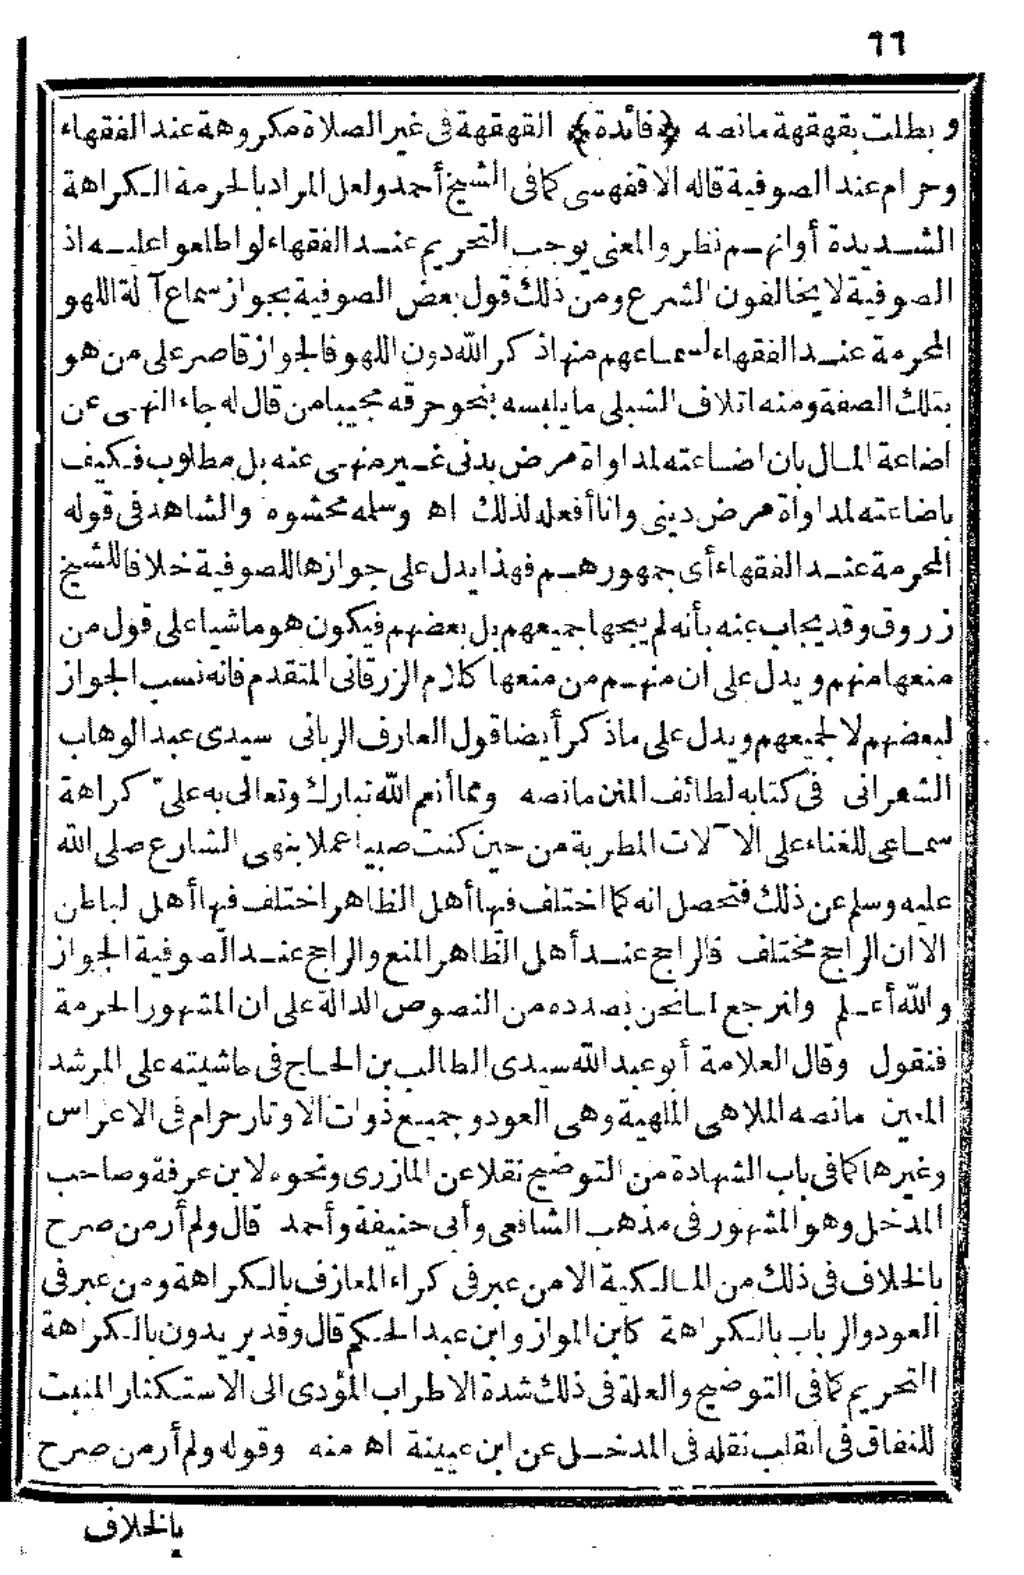 ٦٦
وبطلت بقهقهة مانصه ﴿فائدة﴾ القهقهة فى غير الصلاة مكروهة عند الفقهاء
وحرام عند الصوفية قاله الاقفهسى كما فى الشيخ أحمد ولعل المراد بالحرمة الكراهة
الشديدة أوانهم نظر والمعنى يوجب التحريم عند الفقهاء لواطلعوا عليه اذ
الصوفية لا يخالفون الشرع ومن ذلك قول بعض الصوفية بجواز سماع آلة اللهو
المحرمة عند الفقهاء لسماعهم منها ذكر الله دون اللهو فالجواز قاصر على من هو
بتلك الصفة ومنه اتلاف الشبلى ما يلبسه بنحو حرقه مجيبا من قال له جاء النهى عن
اضاعة المال بان اضاعته لمداواة مرض بدنى غير منهى عنه بل مطلوب فكيف
باضاعته لمداواة مرض دينى وانا أفعله لذلك اه وسلمه محشوه والشاهد فى قوله
المحرمة عند الفقهاء أى جمهورهم فهذا يدل على جوازها للصوفية خلافا للشيخ
زروق وقد يجاب عنه بأنه لم يبحها جميعهم بل بعضهم فيكون هو ماشيا على قول من
منعها منهم ويدل على ان منهم من منعها كلام الزرقانى المتقدم فانه نسب الجواز
لبعضهم لا لجميعهم ويدل على ماذكر أيضا قول العارف الربانى سيدى عبد الوهاب
الشعرانى فى كتابه لطائف المنن مانصه ومما أنعم الله تبارك وتعالى به علىّ كراهة
سماعى للغناء على الآلات المطربة من حين كنت صبيا عملا بنهى الشارع صلى الله
عليه وسلم عن ذلك فتحصل انه كما اختلف فيها أهل الظاهر اختلف فيها أهل لباطن
الا ان الراجح مختلف فالراجح عند أهل الظاهر المنع والراجح عند الصوفية الجواز
والله أعلم ولنرجع لما نحن بصدده من النصوص الدالة على ان المشهور الحرمة
فنقول وقال العلامة أبو عبد الله سيدى الطالب بن الحاج فى حاشيته على المرشد
المعين مانصه الملاهى الملهية وهى العود وجميع ذوات الاوتار حرام فى الاعراس
وغيرها كما فى باب الشهادة من التوضيح نقلا عن المازرى ونحوه لابن عرفة وصاحب
المدخل وهو المشهور فى مذهب الشافعى وأبى حنيفة وأحمد قال ولم أر من صرح
بالخلاف فى ذلك من المالكية الا من عبر فى كراء المعازف بالكراهة ومن عبر فى
العود والرباب بالكراهة كابن المواز وابن عبد الحكم قال وقد يريدون بالكراهة
التحريم كما فى التوضيح والعلة فى ذلك شدة الاطراب المؤدى الى الاستكثار المنبت
للنفاق فى القلب نقله فى المدخل عن ابن عيينة اه منه وقوله ولم أر من صرح
بالخلاف